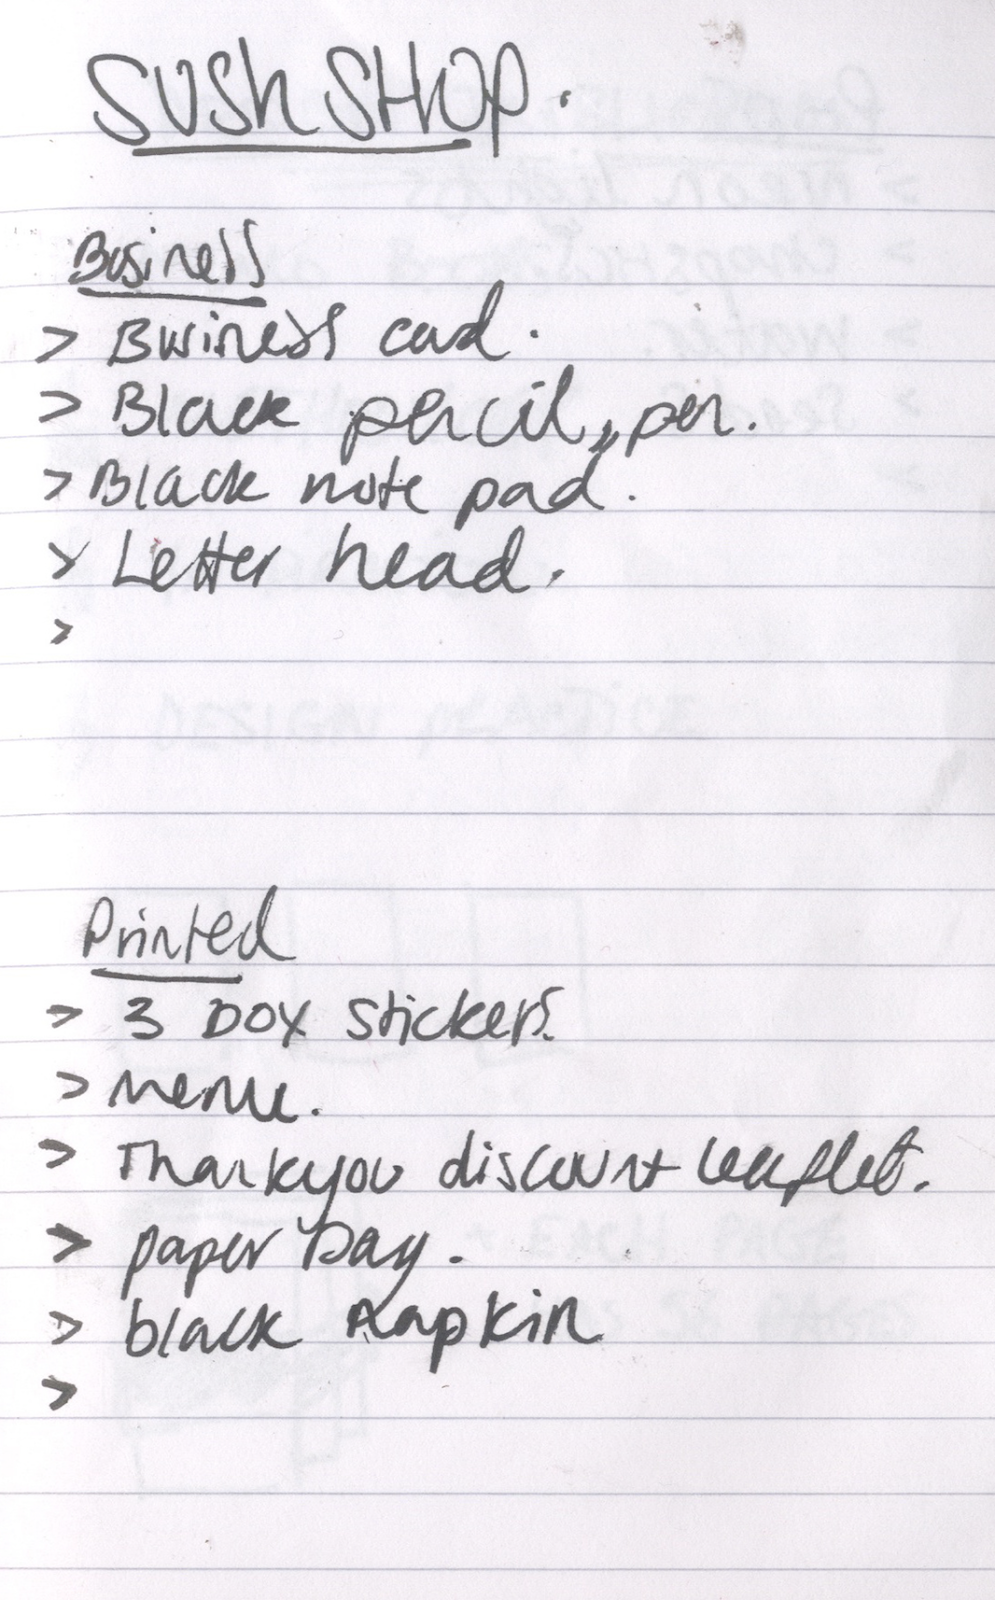 SUSh SHOP.
Business
> Business card.
> Black pencil, pen.
> Black note pad.
> Letter head.
>
Printed
> 3 Box stickers.
> Menu.
> Thankyou discount leaflet.
> paper bag.
> black napkin
>